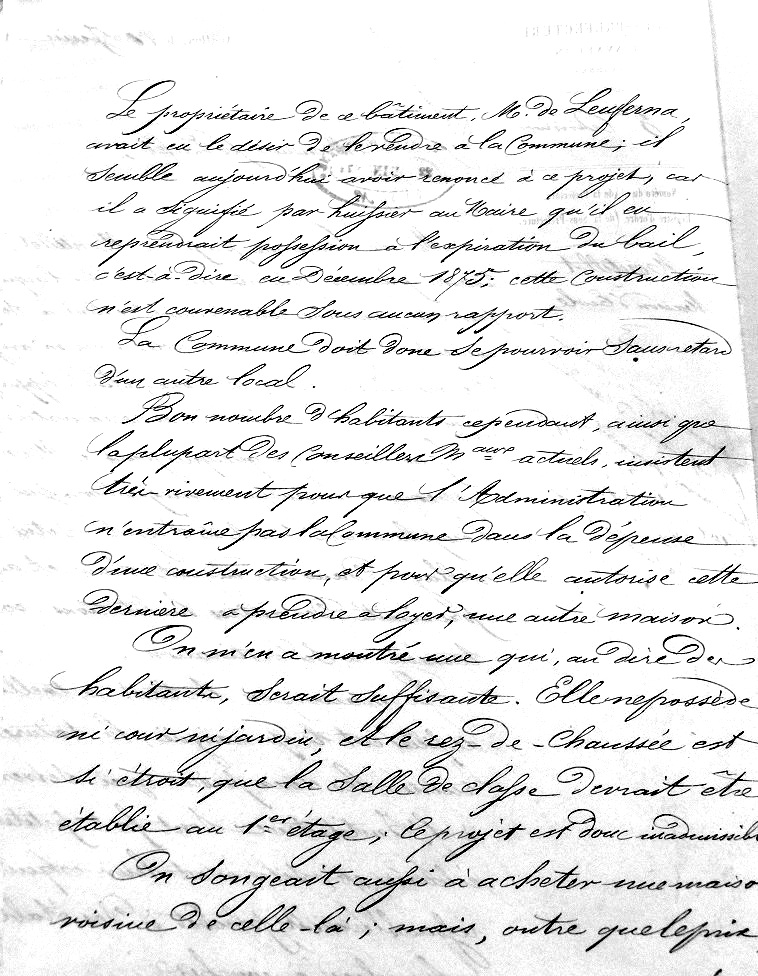 Le propriétaire de ce bâtiment, Mr. de Leusferna,
avait eu le désir de le vendre à la Commune; il
semble aujourd'hui avoir renoncé à ce projet, car
il a signifié par huissier au Maire qu'il en
reprendrait possession à l'expiration du bail,
c'est-à-dire en Décembre 1875; cette construction
n'est convenable sous aucun rapport.
La Commune doit donc se pourvoir sans retard
d'un autre local.
Bon nombre d'habitants cependant, ainsi que
la plupart des Conseillers Maux actuels, insistent
très-vivement pour que l'Administration
n'entraîne pas la Commune dans la dépense
d'une construction, et pour qu'elle autorise cette
dernière à prendre à loyer, une autre maison.
On m'en a montré une qui, au dire des
habitants, serait suffisante. Elle ne possède
ni cour ni jardin, et le rez-de-chaussée est
si étroit, que la salle de classe devrait être
établie au 1er étage; ce projet est donc inadmissible
On songeait aussi à acheter une maiso
voisine de celle-là; mais, outre que le prix